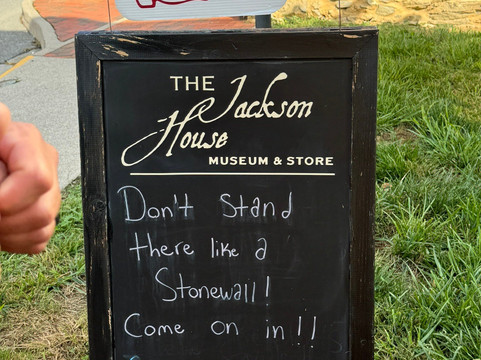 THE Jackson
House
MUSEUM & STORE
Don't Stand
there like a
Stonewall!
Come on in!!